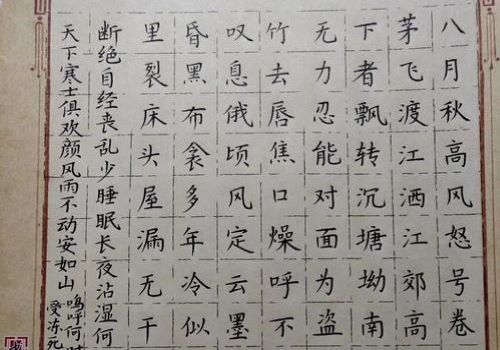 八月秋高风怒号卷
茅飞渡江洒江郊高
下者飘转沉塘坳南
无力忍能对面为盗
竹去唇焦口燥呼不
叹息俄顷风定云墨
昏黑布衾多年冷似
里裂床头屋漏无干
断绝自经丧乱少睡眠长夜沾湿何
天下寒士俱欢颜风雨不动安如山
嗚呼何
受冻死